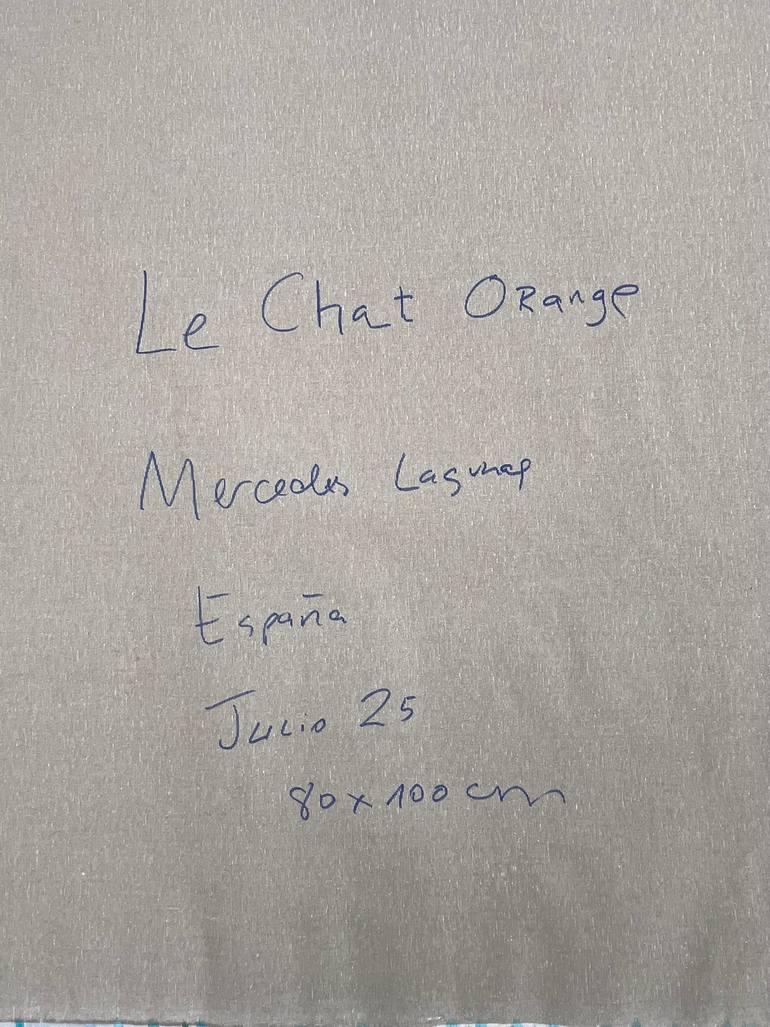 Le Chat Orange
Mercedes Lagunas
España
Julio 25
80 x 100 cm